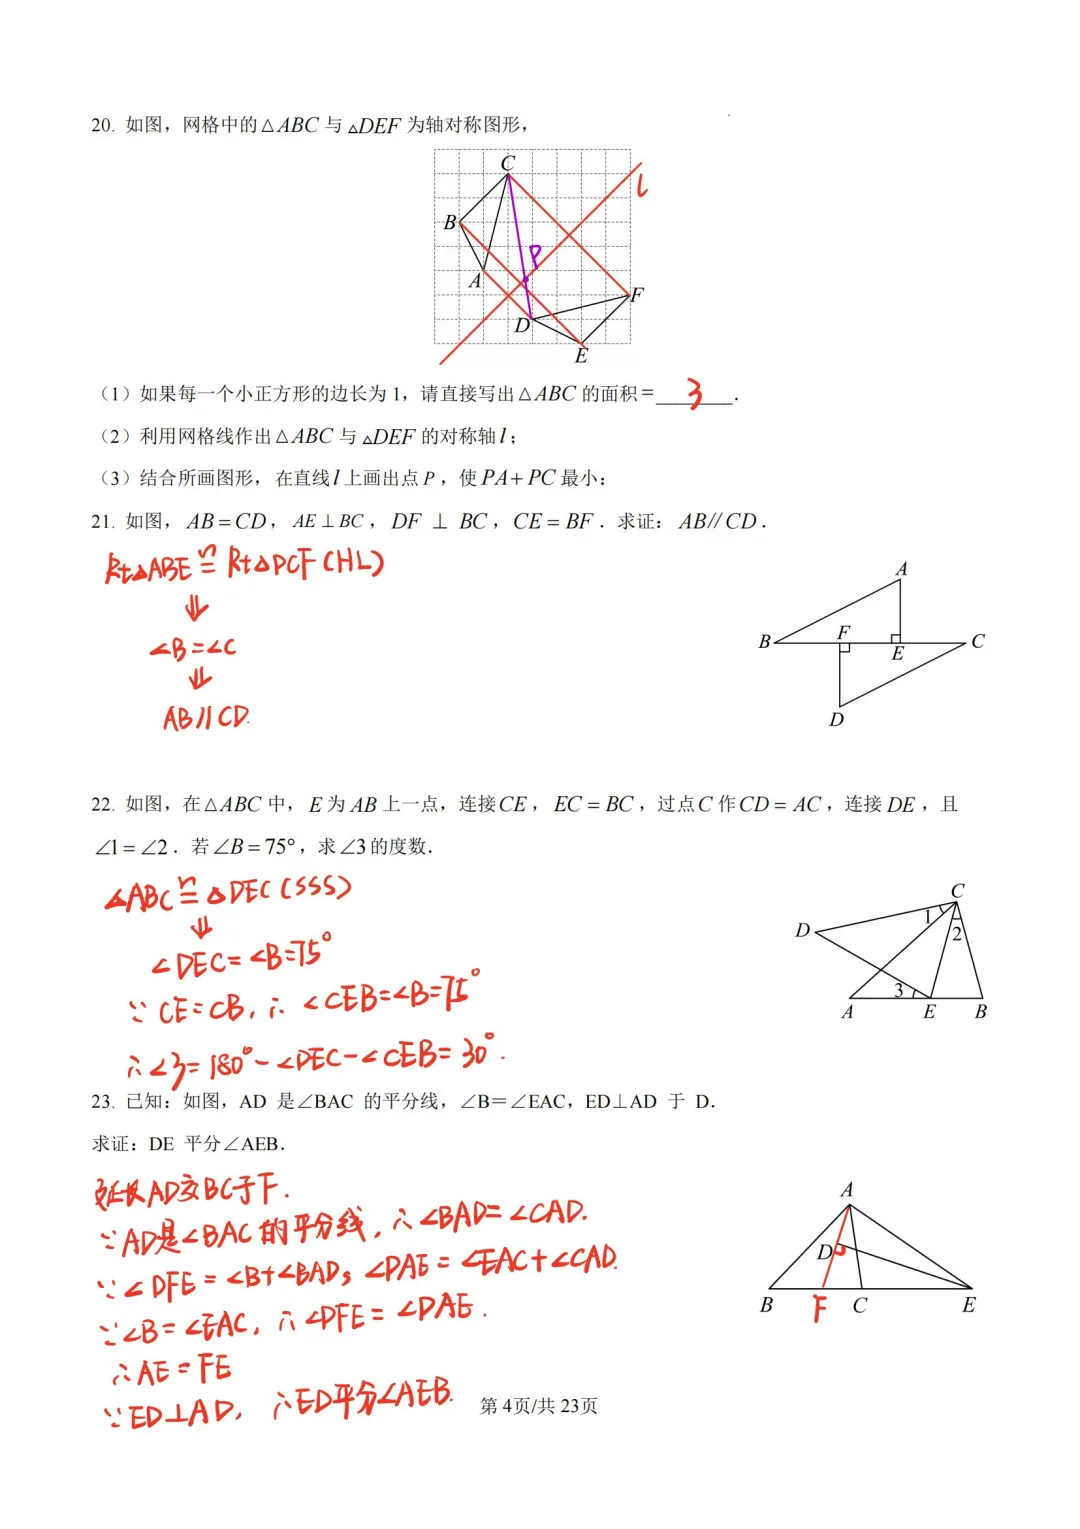 20. 如图，网格中的△ABC 与 △DEF 为轴对称图形，
C
l
B
P
A
F
D
E
（1）如果每一个小正方形的边长为 1，请直接写出△ABC 的面积=3.
（2）利用网格线作出△ABC 与 △DEF 的对称轴l；
（3）结合所画图形，在直线l上画出点 P，使 PA+PC 最小：
21. 如图，AB=CD，AE⊥BC，DF ⊥ BC，CE=BF．求证：AB∥CD．
Rt△ABE≌Rt△DCF(HL)
⇓
∠B=∠C
⇓
AB∥CD.
A
B F E C
D
22. 如图，在△ABC 中，E为 AB上一点，连接CE，EC=BC，过点C 作CD=AC，连接 DE，且
∠1=∠2．若∠B=75°，求∠3的度数．
△ABC≌△DEC(SSS)
⇓
∠DEC=∠B=75°
∵CE=CB，∴∠CEB=∠B=75°
∴∠3=180°-∠DEC-∠CEB=30°.
C
D 1 2
3
A E B
23. 已知：如图，AD 是∠BAC 的平分线，∠B＝∠EAC，ED⊥AD 于 D．
求证：DE 平分∠AEB．
延长AD交BC于F.
∵AD是∠BAC的平分线，∴∠BAD=∠CAD.
∵∠DFE=∠B+∠BAD，∠DAE=∠EAC+∠CAD.
∵∠B=∠EAC，∴∠DFE=∠DAE.
∴AE=FE
∵ED⊥AD，∴ED平分∠AEB.
A
D
B F C E
第 4页/共 23页